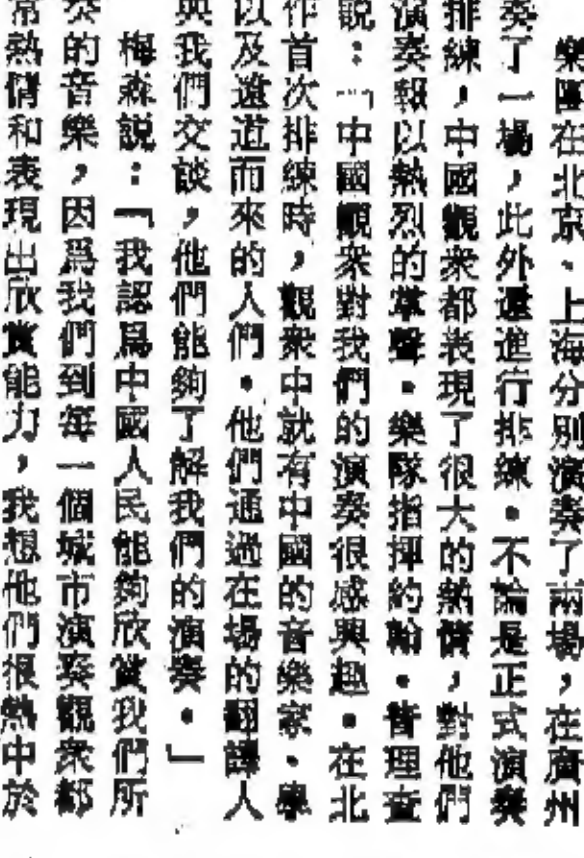 樂團在北京、上海分別演奏了兩場，在廣州
奏了一場，此外還進行排練。不論是正式演奏
排練，中國觀衆都表現了很大的熱情，對他們
演奏報以熱烈的掌聲。樂隊指揮約翰。普理查
說：「中國觀衆對我們的演奏很感興趣。在北
作首次排練時，觀衆中就有中國的音樂家、學
以及遠道而來的人們。他們通過在場的翻譯人
與我們交談，他們能夠了解我們的演奏。」
梅森說：「我認爲中國人民能夠欣賞我們所
奏的音樂，因爲我們到每一個城市演奏觀衆都
常熱情和表現出欣賞能力，我想他們很熱中於